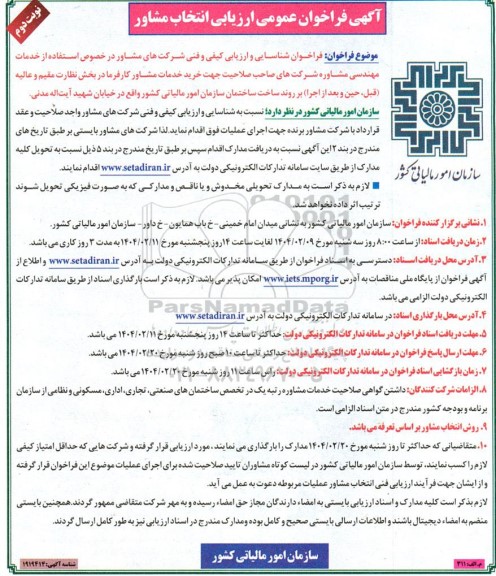 آگهی فراخوان عمومی ارزیابی انتخاب مشاور
نوبت دوم
موضوع فراخوان: فراخوان شناسایی و ارزیابی کیفی و فنی شرکت های مشاور در خصوص استفاده از خدمات
مهندسی مشاوره شرکت های صاحب صلاحیت جهت خرید خدمات مشاور کارفرما در بخش نظارت مقیم و عالیه
(قبل، حین و بعد از اجرا) بر روند ساخت ساختمان سازمان امور مالیاتی کشور واقع در خیابان شهید آیت‌اله مدنی.
سازمان امور مالیاتی کشور در نظر دارد؛ نسبت به شناسایی و ارزیابی کیفی و فنی شرکت های مشاور واجد صلاحیت و عقد
قرارداد با شرکت مشاور برنده جهت اجرای عملیات فوق اقدام نماید. لذا شرکت های مشاور بایستی بر طبق تاریخ های
مندرج در بند ۲ این آگهی نسبت به دریافت مدارک اقدام سپس بر طبق تاریخ مندرج در بند ۵ ذیل نسبت به تحویل کلیه
مدارک از طریق سایت سامانه تدارکات الکترونیکی دولت به آدرس www.setadiran.ir اقدام نمایند.
لازم به ذکر است به مدارک تحویلی مخدوش و یا ناقص و مدارکی که به صورت فیزیکی تحویل شوند
ترتیب اثر داده نخواهد شد.
سازمان امور مالیاتی کشور
۱. نشانی برگزار کننده فراخوان: سازمان امور مالیاتی کشور به نشانی میدان امام خمینی - خ باب همایون - خ داور - سازمان امور مالیاتی کشور.
۲. زمان دریافت اسناد: از ساعت ۸:۰۰ روز سه شنبه مورخ ۱۴۰۴/۰۲/۰۹ لغایت ساعت ۱۴ روز پنجشنبه مورخ ۱۴۰۴/۰۲/۱۱ به مدت ۳ روز کاری می باشد.
۳. آدرس محل دریافت اسناد: دسترسی به اسناد فراخوان از طریق سامانه تدارکات الکترونیکی دولت به آدرس www.setadiran.ir و اطلاع از
آگهی فراخوان از پایگاه ملی مناقصات به آدرس www.iets.mporg.ir امکان پذیر می باشد. لازم به ذکر است بارگذاری اسناد از طریق سامانه تدارکات
الکترونیکی دولت الزامی می باشد.
۴. آدرس محل بارگذاری اسناد: در سامانه تدارکات الکترونیکی دولت به آدرس www.setadiran.ir
۵. مهلت دریافت اسناد فراخوان در سامانه تدارکات الکترونیکی دولت: حداکثر تا ساعت ۱۴ روز پنجشنبه مورخ ۱۴۰۴/۰۲/۱۱ می باشد.
۶. مهلت ارسال پاسخ فراخوان در سامانه تدارکات الکترونیکی دولت: حداکثر تا ساعت ۱۰ صبح روز شنبه مورخ ۱۴۰۴/۰۲/۲۰ می باشد.
۷. زمان بازگشایی اسناد فراخوان در سامانه تدارکات الکترونیکی دولت: راس ساعت ۱۱ روز شنبه مورخ ۱۴۰۴/۰۲/۲۰ می باشد.
۸. الزامات شرکت کنندگان: داشتن گواهی صلاحیت خدمات مشاوره رتبه یک در تخصص ساختمان های صنعتی، تجاری، اداری، مسکونی و نظامی از سازمان
برنامه و بودجه کشور مندرج در متن اسناد الزامی است.
۹. روش انتخاب مشاور بر اساس تعرفه می باشد.
۱۰. متقاضیانی که حداکثر تا روز شنبه مورخ ۱۴۰۴/۰۲/۲۰ مدارک را بارگذاری می نمایند، مورد ارزیابی قرار گرفته و شرکت هایی که حداقل امتیاز کیفی
لازم را کسب نمایند، توسط سازمان امور مالیاتی کشور در لیست کوتاه مشاوران تایید صلاحیت شده برای اجرای عملیات موضوع این فراخوان قرار گرفته
و از ایشان جهت فرآیند ارزیابی فنی انتخاب مشاور عملیات مربوطه دعوت به عمل می آید.
لازم بذکر است کلیه مدارک و اسناد ارزیابی بایستی به امضاء دارندگان مجاز حق امضاء رسیده و به مهر شرکت متقاضی ممهور گردند. همچنین بایستی
منضم به امضاء دیجیتال باشند و اطلاعات ارسالی بایستی صحیح و کامل بوده و مدارک مندرج در اسناد ارزیابی نیز به طور کامل ارسال گردند.
سازمان امور مالیاتی کشور
م.الف: ۳۱۱
شناسه آگهی: ۱۹۱۹۴۱۴
ParsNamadData